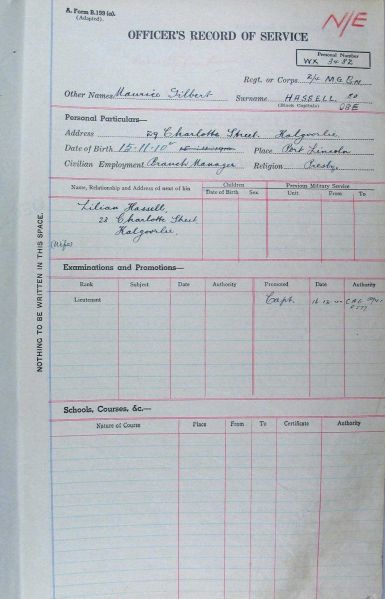 A. Form B.199 (a).
(Adapted).
N/E
OFFICER'S RECORD OF SERVICE
Personal Number
WX 3482
Regt. or Corps. 2/4 M.G. Bn
Other Names Maurice Gilbert Surname HASSELL
(Block Capitals) OBE
Personal Particulars—
Address 29 Charlotte Street. Kalgoorlie.
Date of Birth 15-11-10 Place Port Lincoln
Civilian Employment Branch Manager Religion Presby.
Name, Relationship and Address of next of kin Children Previous Military Service
Date of Birth Sex Unit From To
Lilian Hassell,
23 Charlotte Street
Kalgoorlie.
(Wife)
NOTHING TO BE WRITTEN IN THIS SPACE.
Examinations and Promotions—
Rank Subject Date Authority Promoted Date Authority
Lieutenant Capt.
Schools, Courses, &c.—
Nature of Course Place From To Certificate Authority